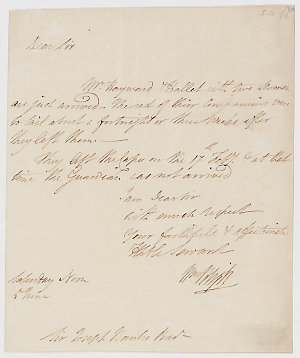 Dear Sir
Mr. Hayward & Hallet with two Seamen
are just arrived. The rest of their companions were
to sail about a fortnight or three Weeks after
they left them.—
They left the Cape on the 17th Feby. & at that
time the Guardian was not arrived
I am Dear Sir
with much respect
Your faithfull & affectionate
Hble Servant
Wm Bligh
Saturday Noon
June
Sir Joseph Banks Bart.